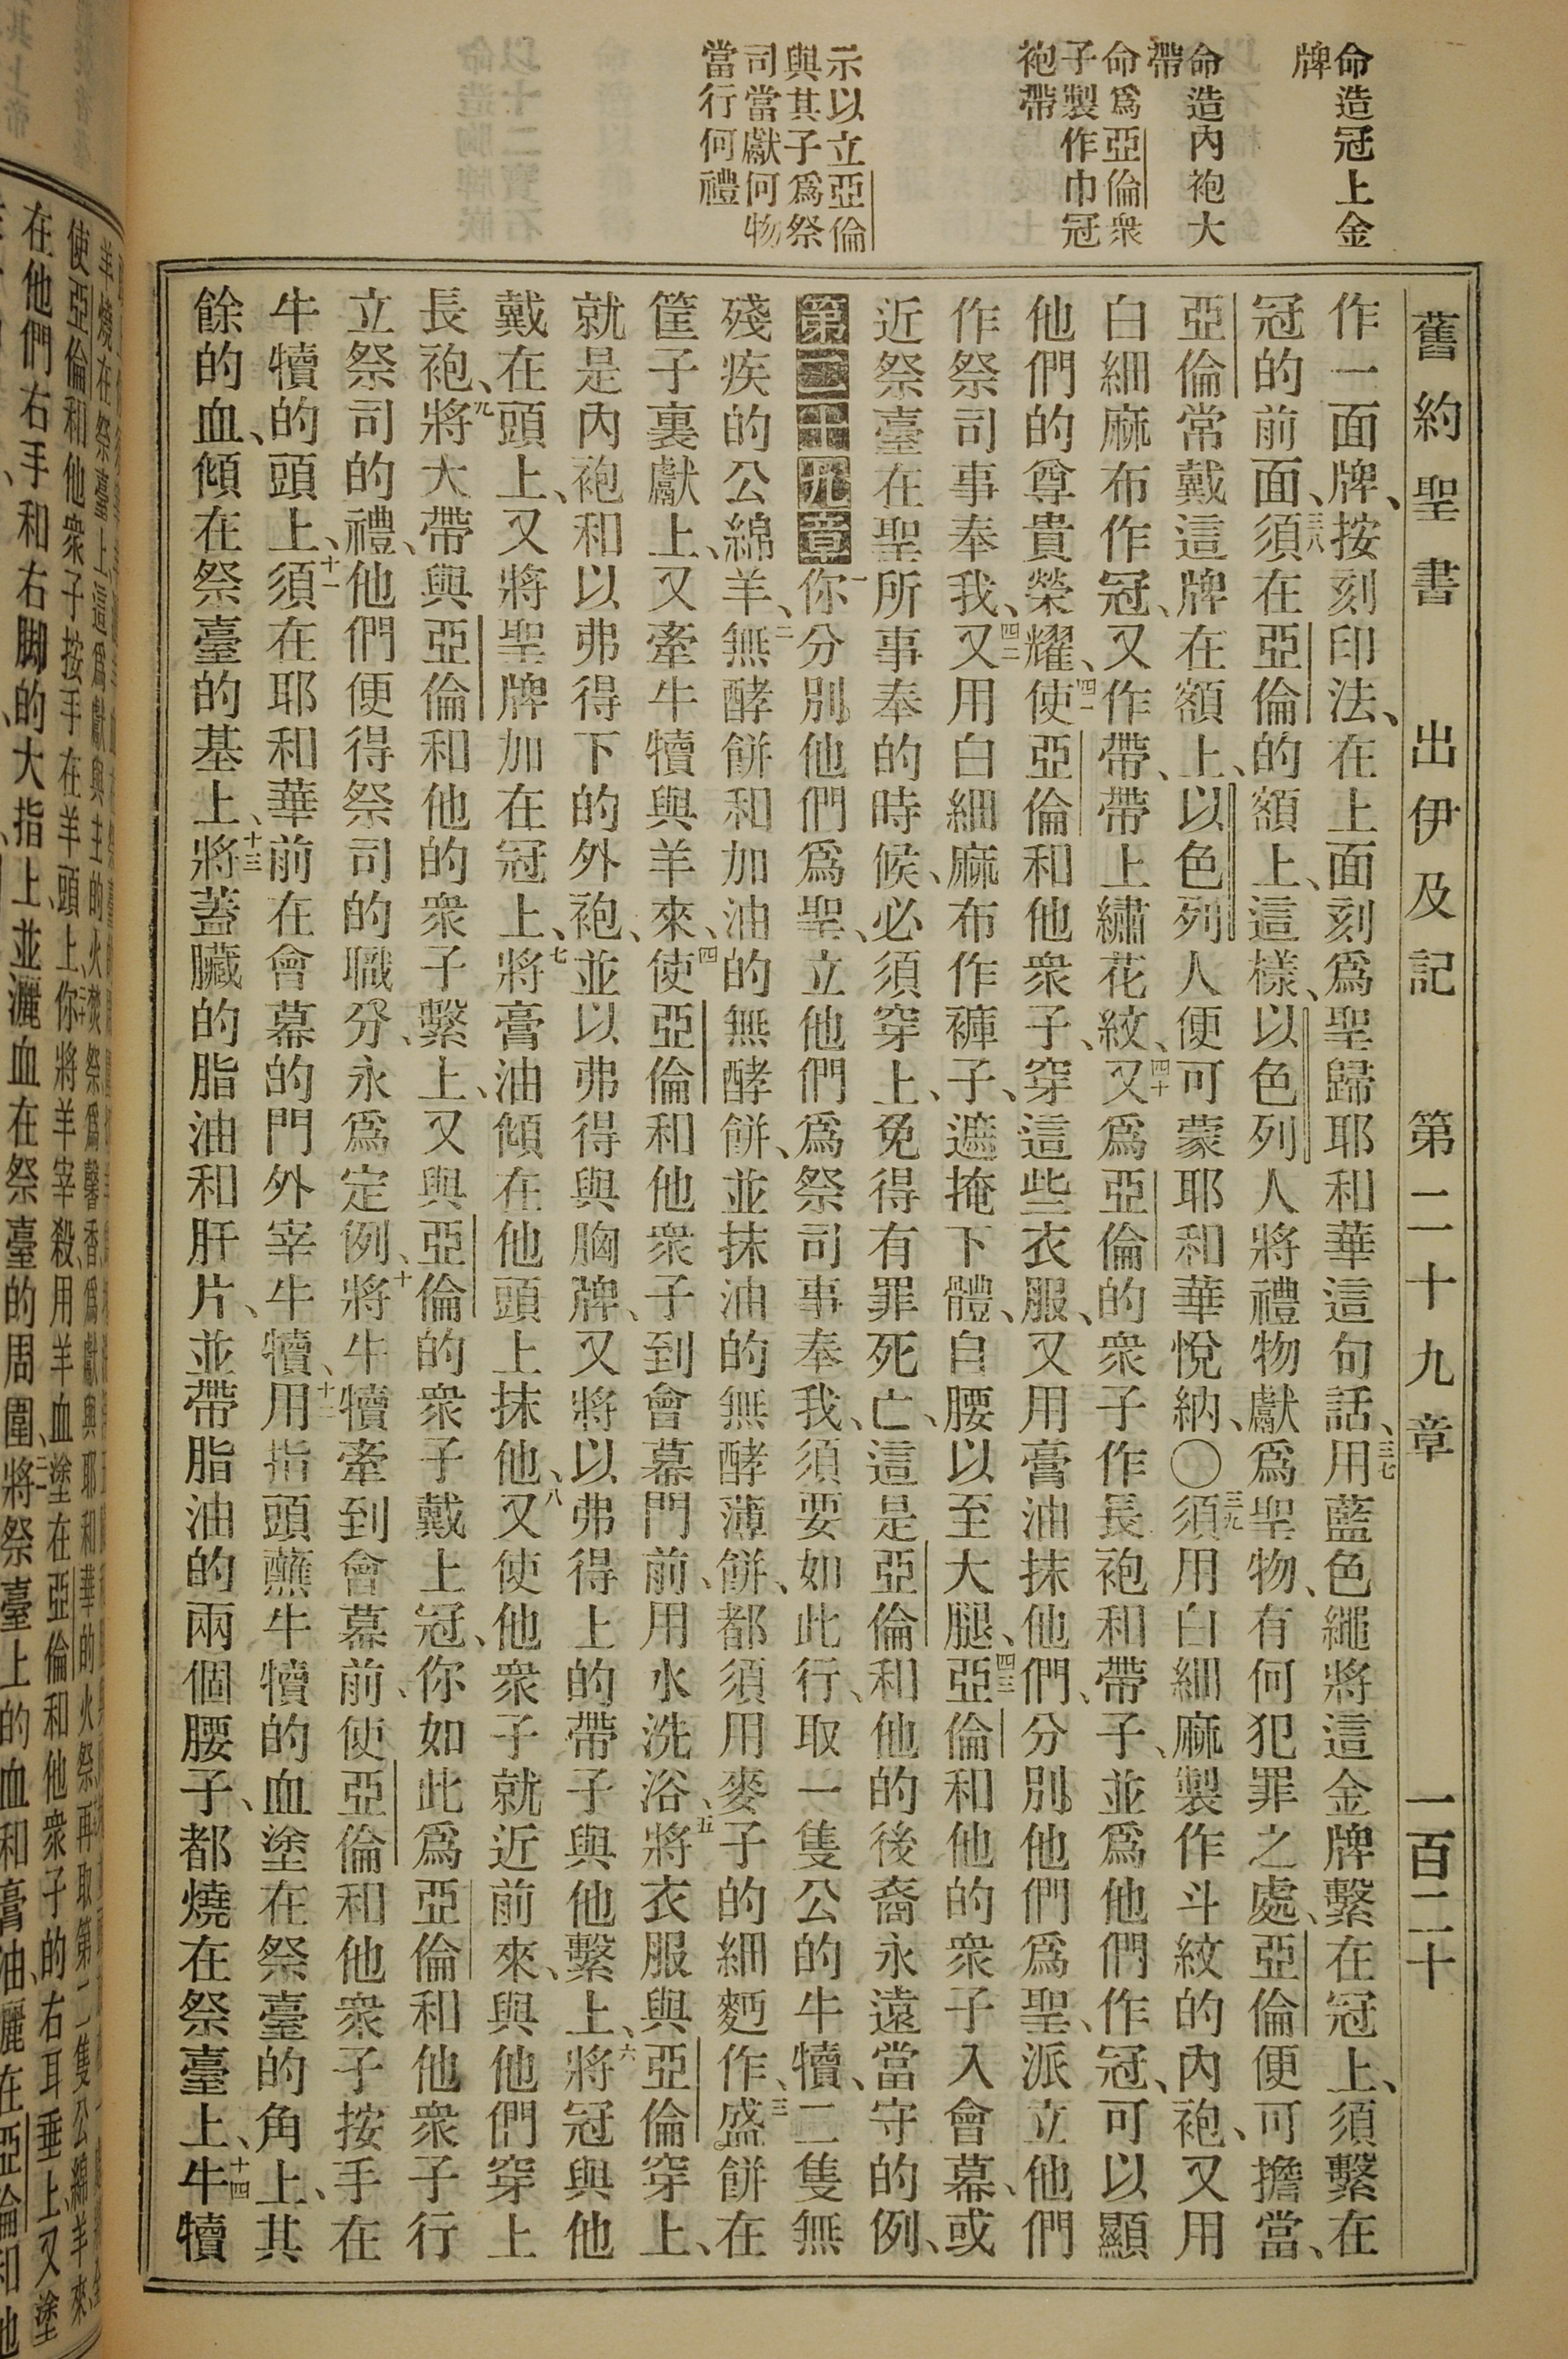 舊約聖書 出伊及記 第二十九章 一百二十
命造冠上金
牌
命造內袍大
帶
命爲亞倫衆
子製作巾冠
袍帶
示以立亞倫
與其子爲祭
司當獻何物
當行何禮
作一面牌、按刻印法、在上面刻爲聖歸耶和華這句話、三七用藍色繩將這金牌繫在冠上、須繫在
冠的前面、三八須在亞倫的額上、這樣、以色列人將禮物獻爲聖物、有何犯罪之處、亞倫便可擔當、
亞倫常戴這牌在額上、以色列人便可蒙耶和華悅納、〇三九須用白細麻製作斗紋的內袍、又用
白細麻布作冠、又作帶、帶上繡花紋、四十又爲亞倫的衆子作長袍和帶子、並爲他們作冠、可以顯
他們的尊貴榮耀、四一使亞倫和他衆子、穿這些衣服、又用膏油抹他們、分別他們爲聖、派立他們
作祭司事奉我、四二又用白細麻布作褲子、遮掩下體、自腰以至大腿、四三亞倫和他的衆子入會幕、或
近祭臺在聖所事奉的時候、必須穿上、免得有罪死亡、這是亞倫和他的後裔永遠當守的例、
第二十九章 一你分別他們爲聖、立他們爲祭司事奉我、須要如此行、取一隻公的牛犢、二隻無
殘疾的公綿羊、二無酵餅和加油的無酵餅、並抹油的無酵薄餅、都須用麥子的細麪作、三盛餅在
筐子裏獻上、又牽牛犢與羊來、四使亞倫和他衆子到會幕門前、用水洗浴、五將衣服與亞倫穿上、
就是內袍和以弗得下的外袍、並以弗得與胸牌、又將以弗得上的帶子與他繫上、六將冠與他
戴在頭上、又將聖牌加在冠上、七將膏油傾在他頭上抹他、八又使他衆子就近前來、與他們穿上
長袍、九將大帶與亞倫和他的衆子繫上、又與亞倫的衆子戴上冠、你如此爲亞倫和他衆子行
立祭司的禮、他們便得祭司的職分、永爲定例、十將牛犢牽到會幕前、使亞倫和他衆子按手在
牛犢的頭上、十一須在耶和華前在會幕的門外宰牛犢、十二用指頭蘸牛犢的血塗在祭臺的角上、其
餘的血、傾在祭臺的基上、十三將蓋臟的脂油和肝片、並帶脂油的兩個腰子、都燒在祭臺上、十四牛犢